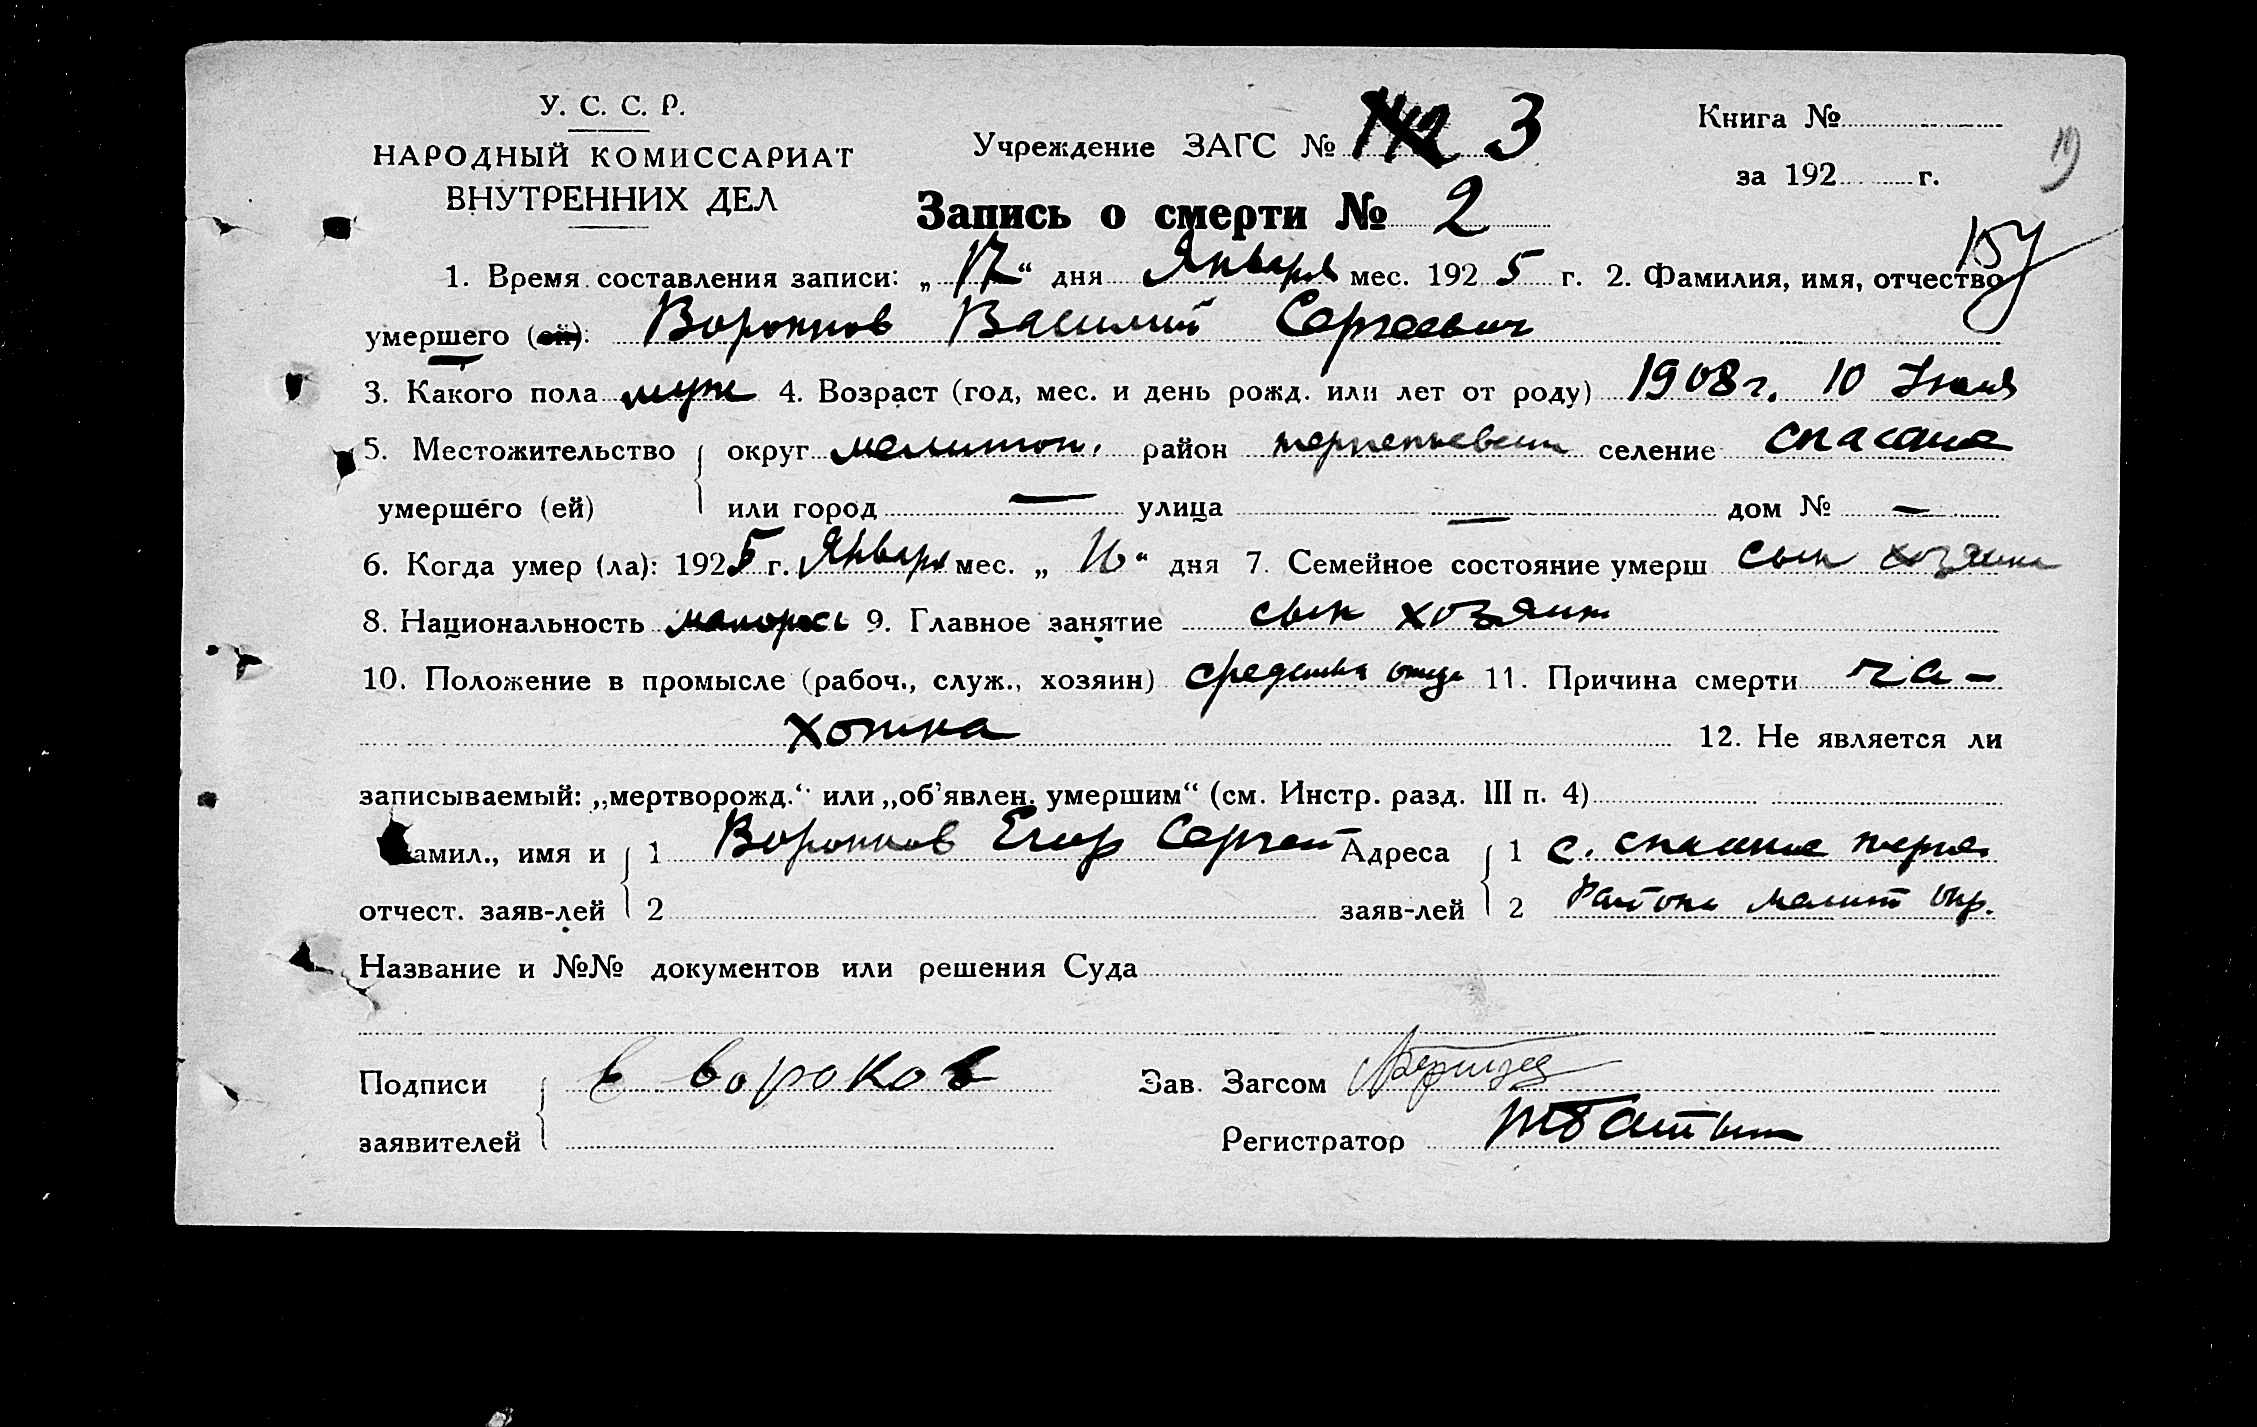 У. С. С. Р.
НАРОДНЫЙ КОМИССАРИАТ
ВНУТРЕННИХ ДЕЛ
Учреждение ЗАГС № 3
Книга №
за 192 г.
19
Запись о смерти № 2
1. Время составления записи: „17“ дня Января мес. 1925 г. 2. Фамилия, имя, отчество
умершего (ей): Воронков Василий Сергеевич
3. Какого пола муж 4. Возраст (год, мес. и день рожд. или лет от роду) 1908 г. 10
5. Местожительство округ мелитоп. район терпеньевск селение спаское
умершего (ей) или город — улица — дом № —
6. Когда умер (ла): 1925 г. Январь мес. „16“ дня 7. Семейное состояние умерш сын хозяина
8. Национальность малорос 9. Главное занятие сын хозяин
10. Положение в промысле (рабоч., служ., хозяин) средства отца 11. Причина смерти ча-
хотка 12. Не является ли
записываемый: „мертворожд.“ или „об'явлен. умершим“ (см. Инстр. разд. III п. 4)
амил., имя и 1 Воронков Егор Сергей Адреса 1 с. терпе.
отчест. заяв-лей 2 заяв-лей 2 Района мелит окр.
Название и №№ документов или решения Суда
Подписи Е Вороков Зав. Загсом
заявителей Регистратор